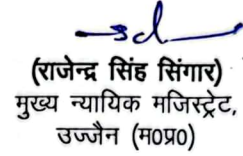 sd
(राजेन्द्र सिंह सिंगार)
मुख्य न्यायिक मजिस्ट्रेट,
उज्जैन (म०प्र०)